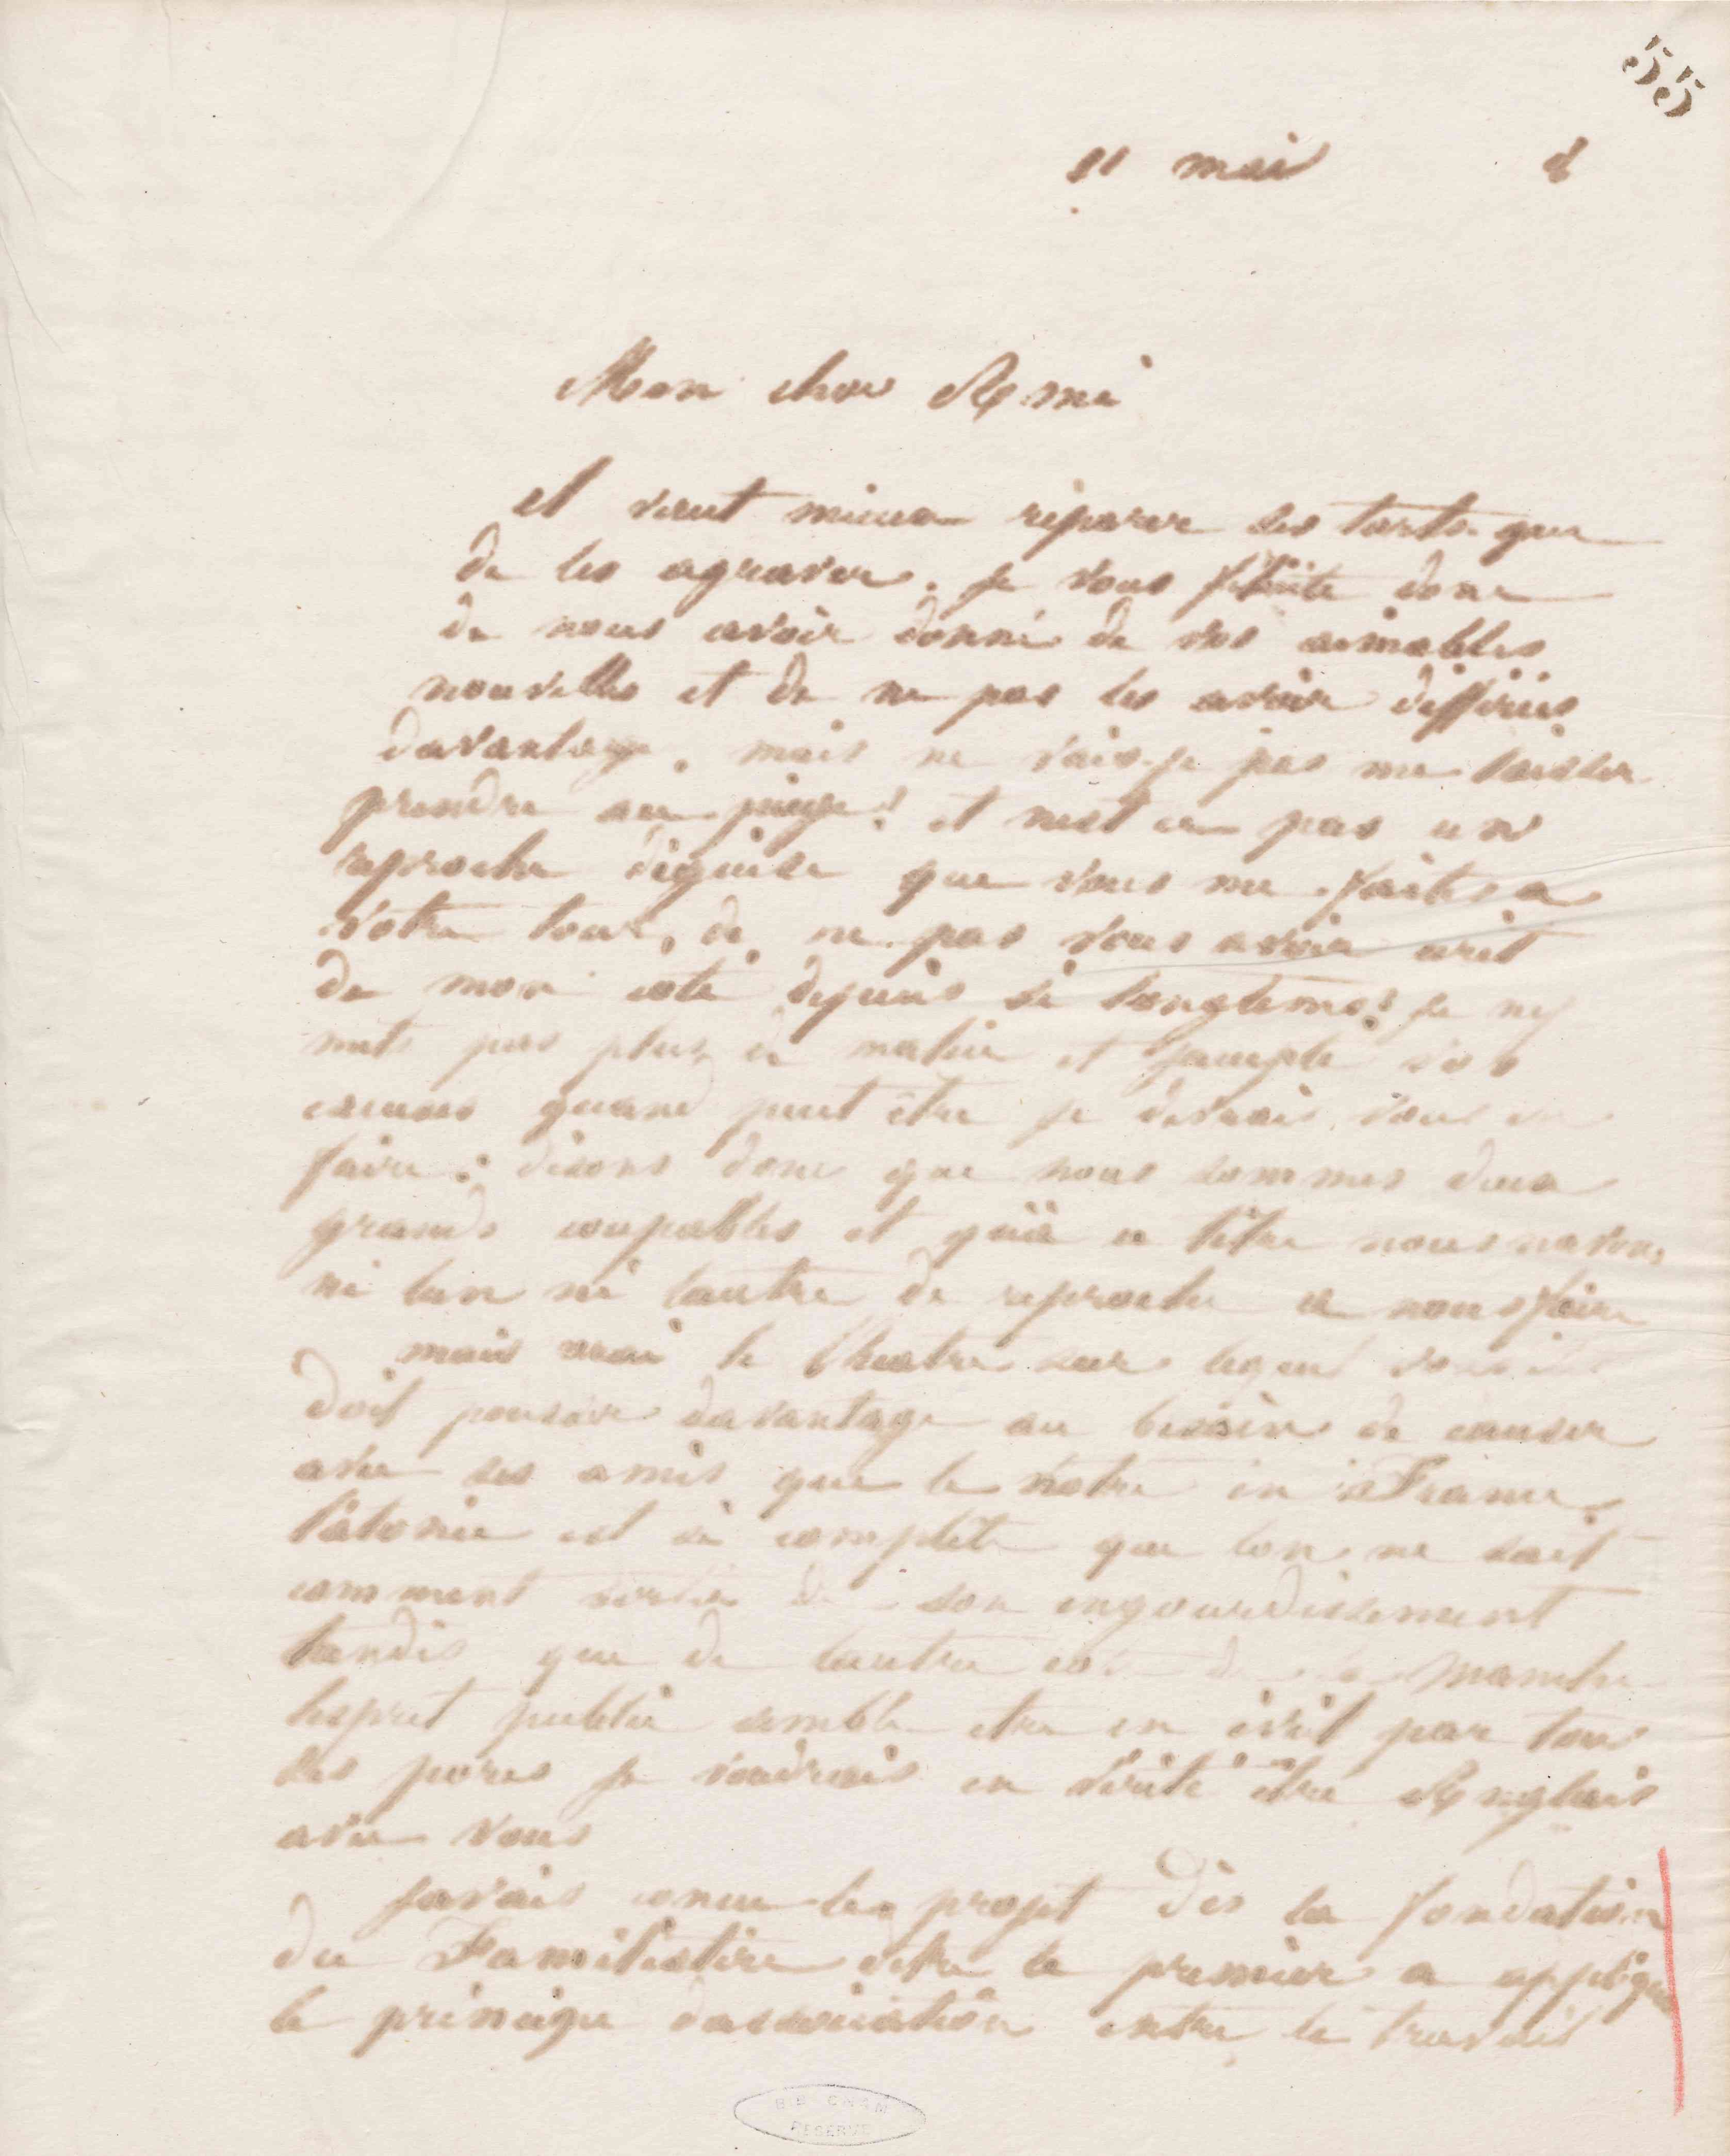 55
11 mai
Mon cher Ami
il vaut mieux réparer ses torts que
de les agraver. je vous félicite donc
de nous avoir donné de vos aimables
nouvelles et de ne pas les avoir différées
davantage. mais ne vais-je pas me laisser
prendre au piège! et nest ce pas un
reproche déguisé que vous me faites a
votre tour, de ne pas vous avoir écrit
de mon coté depuis si longtems? je ny
mets pas plus de malice et jaccepte vos
excuses quand peut être je devrais vous en
faire: disons donc que nous sommes deux
grands coupables et quà ce titre nous navons
ni lun ni lautre de reproche a nous faire
mais vrai le theatre sur lequel
doit pousser davantage au besoin de causer
avec ses amis que le notre en France.
l'atonie est si complète que lon ne sait
comment sortir de son engourdissement
tandis que de lautre coté de la manche
lesprit public semble etre en éveil par tous
les pores je voudrais en vérité être Anglais
avec vous
javais conçu le projet dès la fondation
du Familistère detre le premier a appliquer
le principe dassociation entre le travail
BIB CNAM
RESERVE